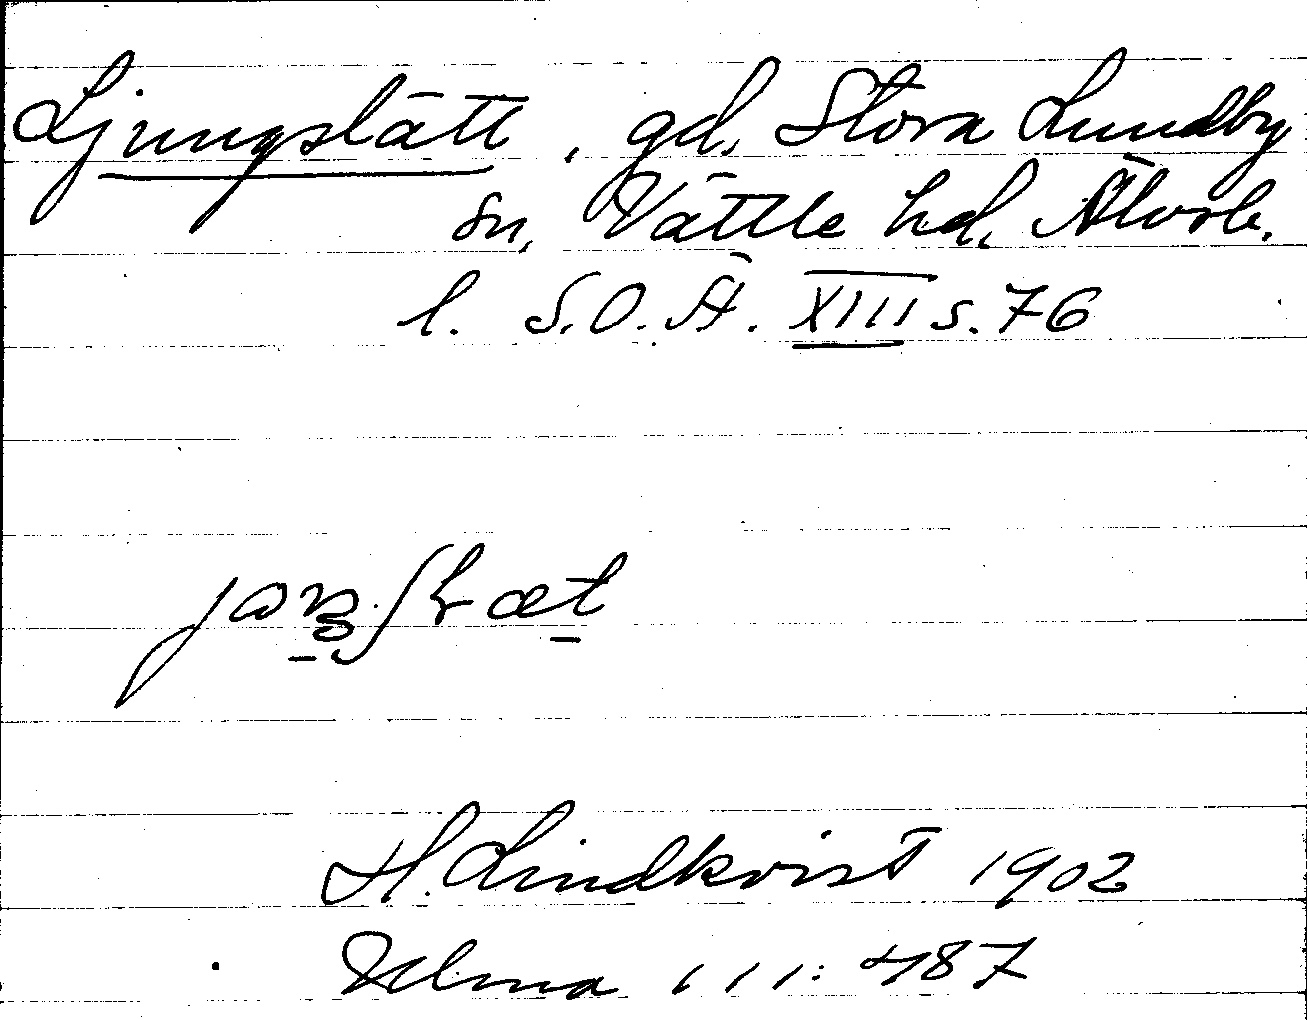 Ljungslätt, gd, Stora Lundby
sn, Vättle hd, Älvsb.
l. S.O.Ä. XIII s. 76
H. Lindkvist 1902
Ulma 111: 487